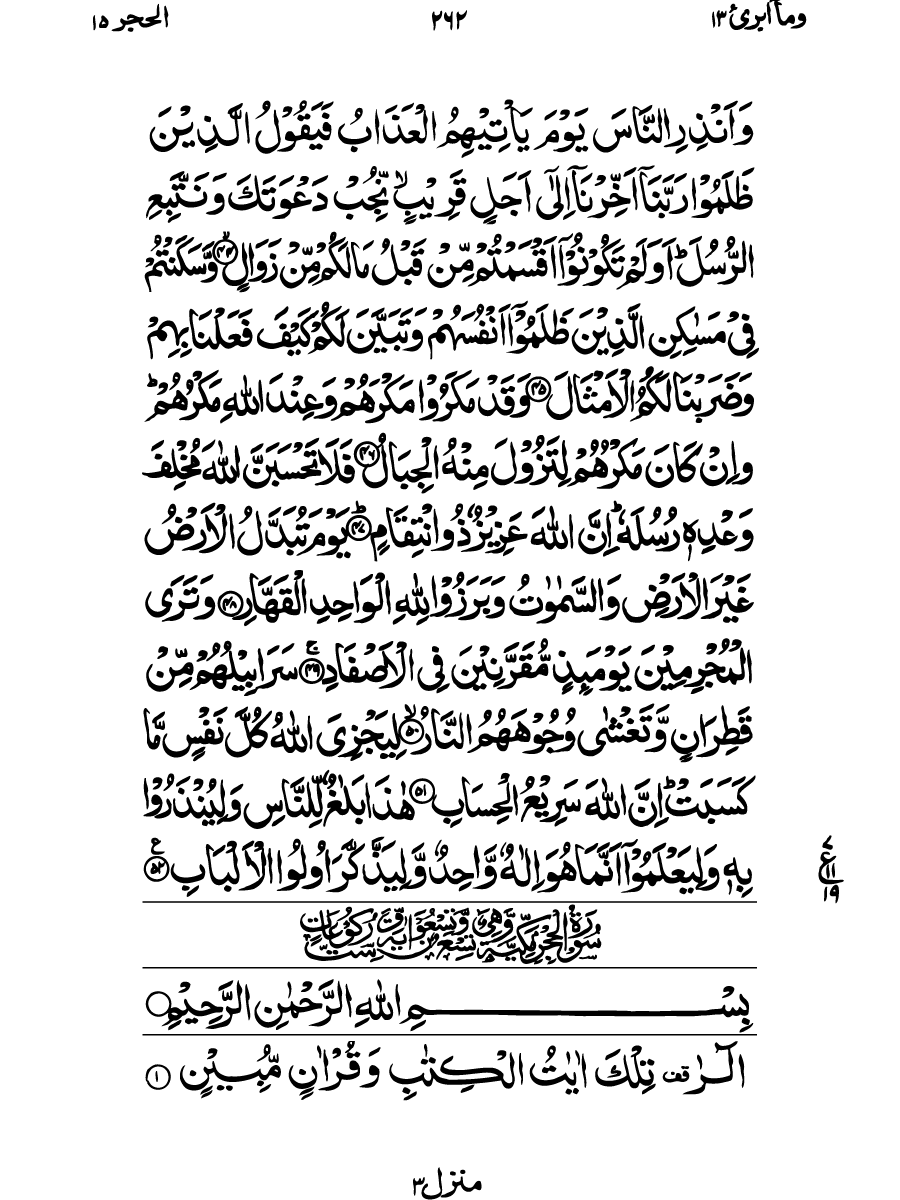 وماۤ ابرئ ١٣
٢٦٢
الحجر ١٥
وَاَنْذِرِ النَّاسَ يَوْمَ يَاْتِيْهِمُ الْعَذَابُ فَيَقُوْلُ الَّذِيْنَ
ظَلَمُوْا رَبَّنَاۤ اَخِّرْنَاۤ اِلٰۤى اَجَلٍ قَرِيْبٍ ۙ نُّجِبْ دَعْوَتَكَ وَنَتَّبِعِ
الرُّسُلَ ؕ اَوَلَمْ تَكُوْنُوْۤا اَقْسَمْتُمْ مِّنْ قَبْلُ مَا لَكُمْ مِّنْ زَوَالٍ ۙ‏﴿٤٤﴾ وَّسَكَنْتُمْ
فِىْ مَسٰكِنِ الَّذِيْنَ ظَلَمُوْۤا اَنْفُسَهُمْ وَتَبَيَّنَ لَكُمْ كَيْفَ فَعَلْنَا بِهِمْ
وَضَرَبْنَا لَكُمُ الْاَمْثَالَ ﴿٤٥﴾ وَقَدْ مَكَرُوْا مَكْرَهُمْ وَعِنْدَ اللّٰهِ مَكْرُهُمْ ؕ
وَاِنْ كَانَ مَكْرُهُمْ لِتَزُوْلَ مِنْهُ الْجِبَالُ ﴿٤٦﴾ فَلَا تَحْسَبَنَّ اللّٰهَ مُخْلِفَ
وَعْدِهٖ رُسُلَهٗ ؕ اِنَّ اللّٰهَ عَزِيْزٌ ذُوانْتِقَامٍ ؕ‏﴿٤٧﴾ يَوْمَ تُبَدَّلُ الْاَرْضُ
غَيْرَ الْاَرْضِ وَالسَّمٰوٰتُ وَبَرَزُوْا لِلّٰهِ الْوَاحِدِ الْقَهَّارِ ﴿٤٨﴾ وَتَرَى
الْمُجْرِمِيْنَ يَوْمَٮِٕذٍ مُّقَرَّنِيْنَ فِى الْاَصْفَادِ ۚ‏﴿٤٩﴾ سَرَابِيْلُهُمْ مِّنْ
قَطِرَانٍ وَّتَغْشٰى وُجُوْهَهُمُ النَّارُ ۙ‏﴿٥٠﴾ لِيَجْزِىَ اللّٰهُ كُلَّ نَفْسٍ مَّا
كَسَبَتْ ؕ اِنَّ اللّٰهَ سَرِيْعُ الْحِسَابِ ﴿٥١﴾ هٰذَا بَلٰغٌ لِّلنَّاسِ وَلِيُنْذَرُوْا
بِهٖ وَلِيَعْلَمُوْۤا اَنَّمَا هُوَ اِلٰهٌ وَّاحِدٌ وَّلِيَذَّكَّرَ اُولُوا الْاَلْبَابِ ﴿٥٢﴾ ع
٧
ع ١١
١٩
سُوْرَةُ الْحِجْرِ مَكِّيَّةٌ وَّهِىَ تِسْعٌ وَّتِسْعُوْنَ اٰيَةً وَّسِتُّ رُكُوْعَاتٍ
بِسْمِ اللّٰهِ الرَّحْمٰنِ الرَّحِيْمِ
الٓرٰ ࣞ تِلْكَ اٰيٰتُ الْكِتٰبِ وَقُرْاٰنٍ مُّبِيْنٍ ﴿١﴾
منزل ٣